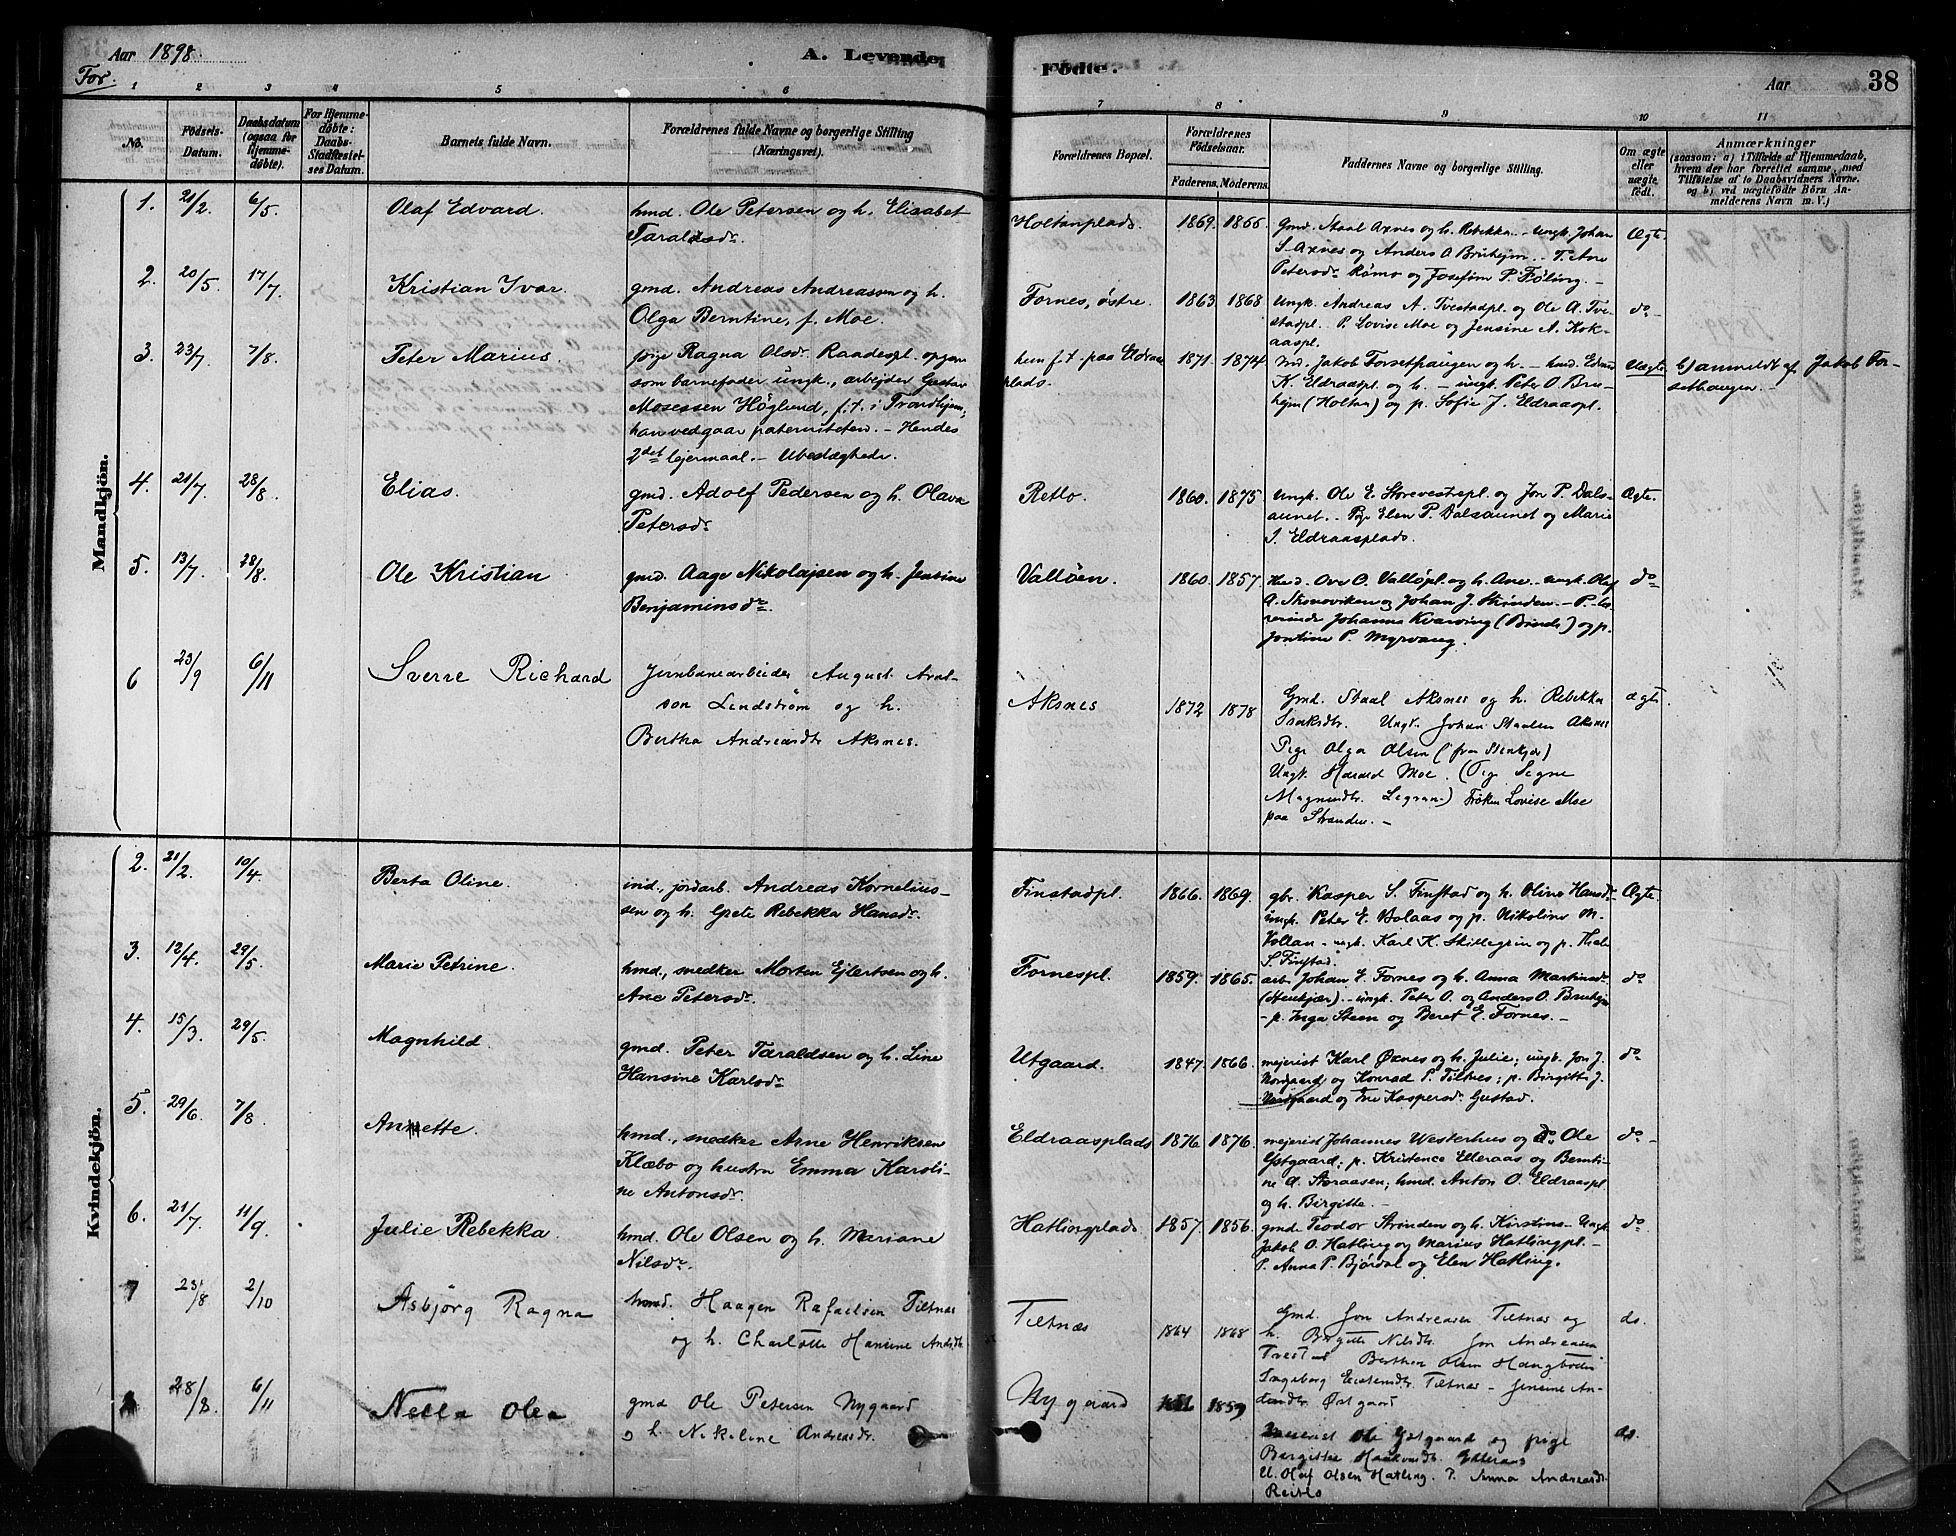 Aar 1898.
A. Levende
Fødte.
Aar 38
For
1 2 3 4 5 6 7 8 9 10 11
No.
Fødsels-
Datum.
Daabsdatum
(ogsaa for
Hjemme-
døbte).
For Hjemme-
døbte:
Daabs-
Stadfæstel-
ses Datum.
Barnets fulde Navn.
Forældrenes fulde Navne og borgerlige Stilling
(Næringsvei).
Forældrenes Bopæl.
Forældrenes
Fødselsaar.
Faderens. Moderens.
Faddernes Navne og borgerlige Stilling.
Om ægte
eller
uægte
født.
Anmærkninger
(saasom: a) i Tilfælde af Hjemmedaab,
hvem der har forrettet samme, med
Tilføielse af to Daabsvidners Navne.
og b) ved uægtefødte Børn An-
melderens Navn m. V.)
Mandkjön.
1. 21/2. 6/5. Olaf Edvard. hmd. Ole Petersen og h. Elisabet
Taraldsdr.
Holtanplads. 1869. 1866. Gmd. Staal Axnes og h. Rebekka. - ungk. Johan
S. Axnes og Anders O. Bruhejm. - P. Ane
Petersdr. Rømo og Josefine P. Føling. -
Ægte.
2. 20/5. 17/7. Kristian Ivar. gmd. Andreas Andreassen og h.
Olga Berntine, f. Moe.
Fornes, østre. 1863. 1868. Ungk. Andreas A. Tvestadpl. og Ole A. Tve-
stadpl. P. Lovise Moe og Jensine A. Kok-
aaspl.
do
3. 23/7. 7/8. Peter Marius. pige Ragna Olsdr. Raadespl. opgav
som barnefader ungk., arbejder Gustav
Mosessen Höglund, f. t. i Trondhjem,
han vedgaar paterniteten. - Hendes
2det lejermaal. - Ubeslægtede.
hun f. t. paa Eldraas-
plads.
1871. 1874. Md. Jakob Forsethaugen og h. - hmd. Edvard
K. Eldraaspl. og h. - ungk. Peter O. Bru-
hejm (Holtan) og p. Sofie J. Eldraaspl.
Uægte. b) anmeldt af Jakob For-
sethaugen.
4. 21/7. 28/8. Elias. gmd. Adolf Pedersen og h. Olava
Petersdr.
Retlo. 1860. 1875. Ungk. Ole E. Storevestrepl. og Jon P. Dals-
aunet. - Pige Elen P. Dalsaunet og Marie
J. Eldraasplads.
Ægte.
5. 13/7. 28/8. Ole Kristian gmd. Aage Nikolajsen og h. Jensine
Benjaminsdr.
Valløen. 1860. 1857. Hmd. Ove O. Valløpl. og h. Ane. - ungk. Olaf
A. Skonoviken og Johan J. Strinden. - P.
Johanna Kvarving (Binde) og p.
Jontine P. Myrvang.
do
6 23/9 6/11 Sverre Richard Jernbanearbeider August Aral-
son Lindstrøm og h.
Bertha Andreasdtr Aksnes.
Aksnes 1872 1878 Gmd. Staal Aksnes og h. Rebekka
Isaksdtr. Ungk. Johan Staalsen Aksnes
Pige Olga Olsen (fra Stenkjær)
Ungk. Harald Moe. (Pig Signe
Magnusdtr. Legran) Frøken Lovise Moe
paa Stranden. -
ægte
Kvindekjön.
2. 21/2. 10/4. Berta Oline. ind., jordarb. Andreas Kornelius-
sen og h. Grete Rebekka Hansdr.
Finstadpl. 1866. 1869. gbr. Kasper S. Finstad og h. Oline Hansdr.
ungk. Peter E. Bolaas og p. Nikoline M.
Vollan - ungk. Karl K. Skillegrin og p. Thale
S. Finstad.
Ægte.
3. 12/4. 29/5. Marie Petrine. hmd., snedker Morten Ejlertsen og h.
Ane Petersdr.
Fornespl. 1859. 1865. arb. Johan E. Fornes og h. Anna Martinsdr.
(Stenkjær). - ungk. Peter O. og Anders O. Bruhejm
- p. Inga Steen og Beret E. Fornes. -
do
4. 15/3. 29/5. Magnhild. gmd. Peter Taraldsen og h. Line
Hansine Karlsdr.
Utgaard. 1847. 1866. mejerist Karl Øxnes og h. Julie; ungk. Jon J.
Nordgaard og Konrad P. Tiltnes; p. Birgitte J.
Nordgaard og Ene Kaspersdr. Gustad.
do
5. 29/6. 7/8. Annette. hmd., snedker Arne Henriksen
Klæbo og hustru Emma Karoli-
ne Antonsdr.
Eldraasplads 1876. 1876. mejerist Johannes Westerhus og do Ole
Ystgaard; p. Kristence Elleraas og Bernti-
ne A. Storaasen; hmd. Anton O. Eldraaspl
og h. Birgitte. -
do
6. 21/7. 11/9. Julie Rebekka. hmd. Ole Olsen og h. Mariane
Nilsdr.
Hatlingplads 1857. 1856. gmd. Teodor Strinden og h. Kirstine - Ungk.
Jakob O. Hatling og Marius Hatlingpl. -
P. Anna P. Bjørdal og Elen Hatling.
do
7 23/8 2/10 Asbjörg Ragna hmd. Haagen Rafaelsen Tiltnæs
og h. Charlotte Hansine Andrdtr.
Tiltnæs 1864 1868 Gmd. Jon Andreasen Tiltnæs og
h. Birgitte Nilsdtr. Jon Andreasen
Tvestad Berthen Olsen Haugbotten
Ingeborg Tiltnæs - Jensine An-
Østgaard
do.
28/8 6/11 Nella Olea gmd Ole Petersen Nygaard
og h. Nikoline Andreasdr.
Nygaard 1859 Meierist Ole Ystgaard og pige
Birgitte Haakonsdtr. Ydteraas
U. Olaf Olsen Hatling. P. Anna Andreasdtr.
Reitlo
do.